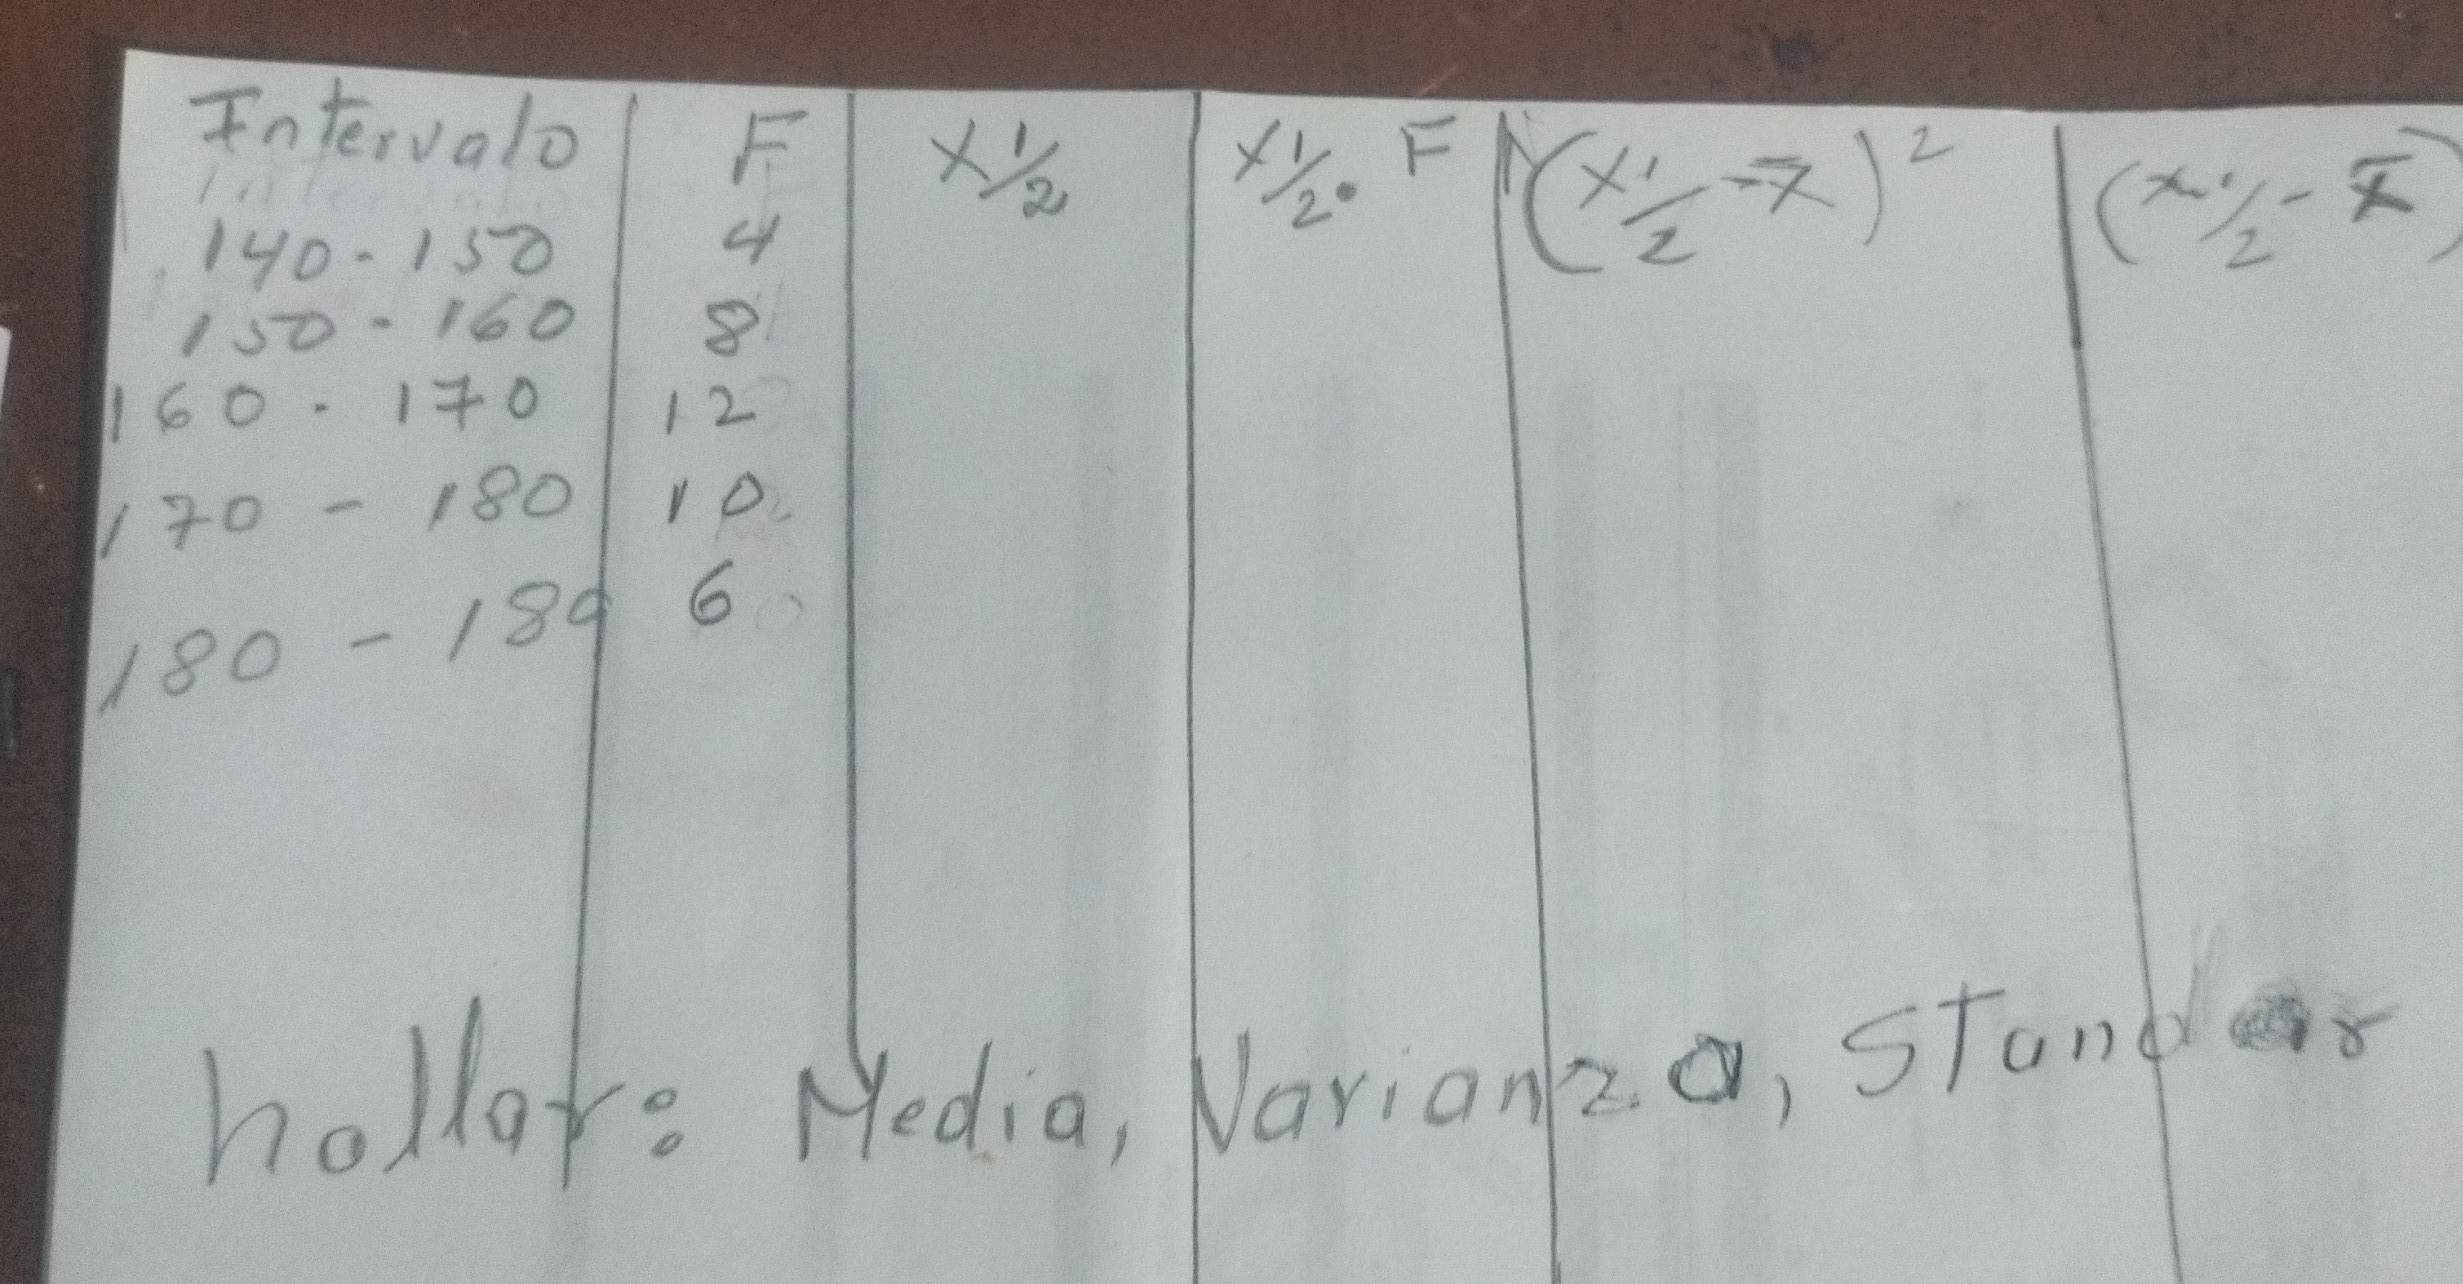 Intervalo F X 1/2 X 1/2 . F (X 1/2 - x̄)² (x 1/2 - x̄)
140 - 150 4
150 - 160 8
160 - 170 12
170 - 180 10
180 - 189 6
hallar: Media, Varianza, Standar